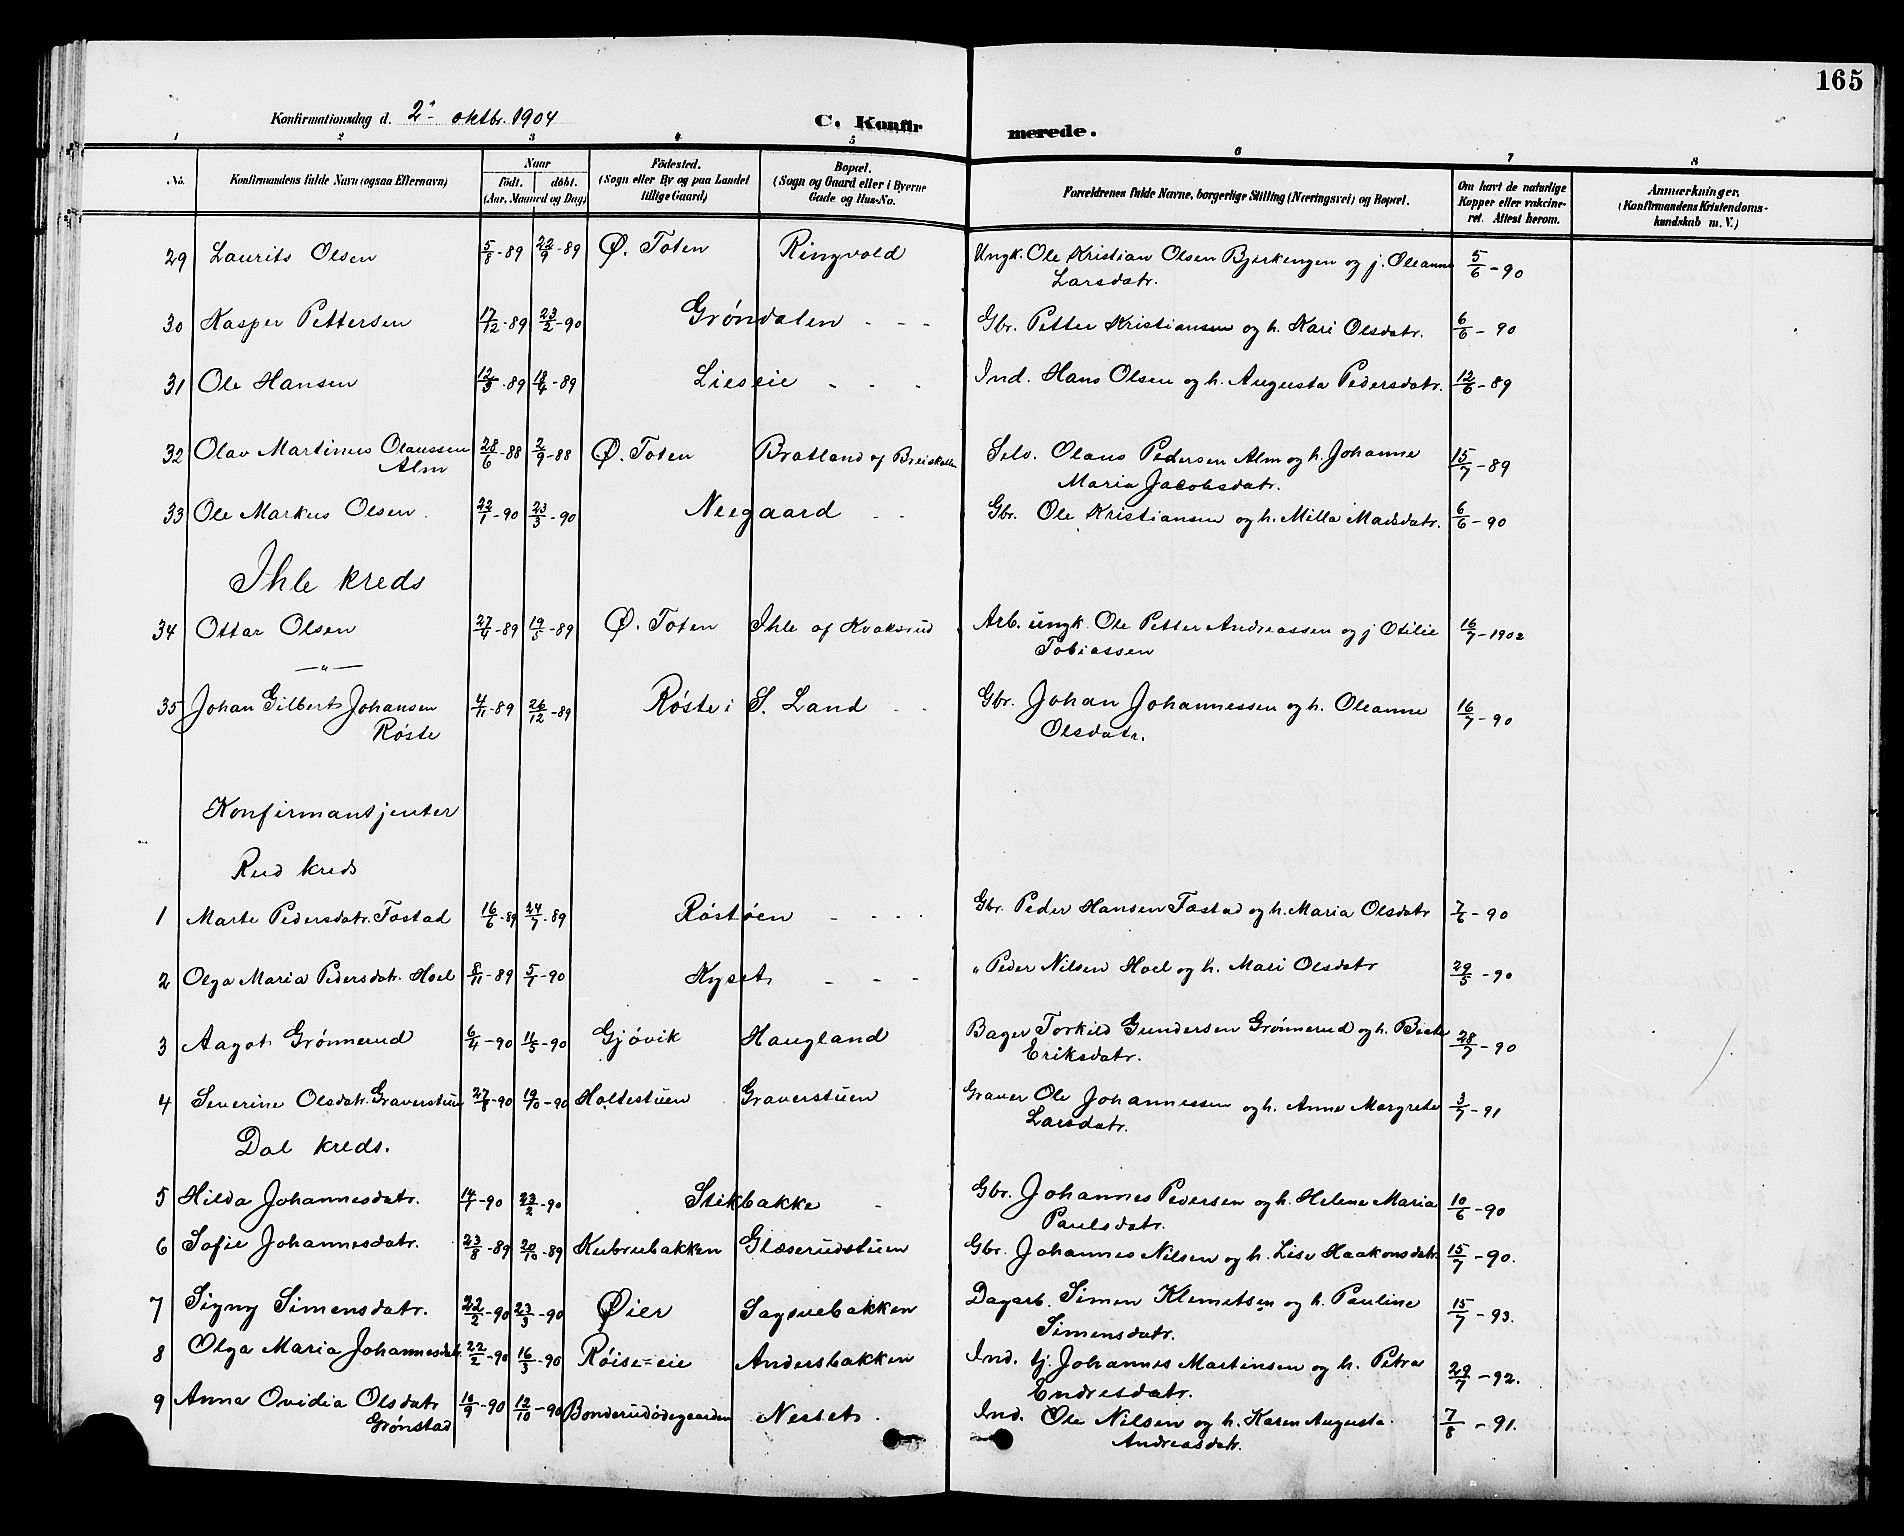 165
Konfirmationsdag d. 2. oktbr. 1904
C. Konfirmerede.
1 2 3 4 5 6 7 8
No.
Konfirmandens fulde Navn (ogsaa Efternavn)
Naar
födt. döbt.
(Aar, Maaned og Dag)
Födested.
(Sogn eller By og paa Landet
tillige Gaard)
Bopæl.
(Sogn og Gaard eller i Byerne
Gade og Hus-No.
Forældrenes fulde Navne, borgerlige Stilling (Næringsvei) og Bopæl.
Om havt de naturlige
Kopper eller vakcine-
ret. Attest herom.
Anmærkninger.
(Konfirmandens Kristendoms-
kundskab m. V.)
29 Laurits Olsen 5/8-89 22/9-89 Ø. Toten Ringvold Ungk. Ole Kristian Olsen Bjerkengen og j. Oleanna 5/6-90
Larsdatr.
30 Kasper Pettersen 17/12-89 23/2-90 Grøndalen - - - Gbr. Petter Kristiansen og h. Kari Olsdatr. 6/6-90
31 Ole Hansen 12/3-89 18/4-89 Lieseie - - - Ind. Hans Olsen og h. Augusta Pedersdatr. 12/6-89
32 Olav Martinus Olaussen 28/6-88 2/9-88 Ø. Toten Bratland af Breiskallen Selv. Olaus Pedersen Alm og h. Johanne 15/7-89
Alm Maria Jacobsdatr.
33 Ole Markus Olsen. 22/1-90 23/3-90 Neegaard - - Gbr. Ole Kristiansen og h. Milla Madsdatr. 6/6-90
Ihle kreds
34 Ottar Olsen 27/4-89 19/5-89 Ø. Toten Ihle af Kvaksrud Arb. ungk. Ole Petter Andreassen og j Otilie 16/7-1902
Tobiassen
—"—
35 Johan Gilbert Johansen 4/11-89 26/12-89 Røste i S. Land - - Gbr. Johan Johannessen og h. Oleanne 16/7-90
Røste Olsdatr.
Konfirmantjenter
Rud kreds
1 Marte Pedersdatr. Tostad 16/6-89 24/7-89 Røstøen - - - - Gbr. Peder Hansen Tostad og h. Maria Olsdatr 7/6-90
2 Olga Maria Pedersdatr. Hoel 8/11-89 5/1-90 Kyset, - - - " Peder Nilsen Hoel og h. Mari Olsdatr 29/5-90
3 Aagot Grønnerud 6/4-90 11/5-90 Gjøvik Haugland Bager Torkild Gundersen Grønnerud og h. Beate 28/7-90
Eriksdatr.
4 Severine Olsdatr. Graverstuen 27/8-90 19/10-90 Holtestuen Graverstuen Graver Ole Johannessen og h. Anne Margrete 3/7-91
Larsdatr.
Dal kreds.
5 Hilda Johannesdatr. 14/1-90 23/2-90 Stikbakke - Gbr. Johannes Pedersen og h. Helene Maria 10/6-90
Paulsdatr.
6 Sofie Johannesdatr. 23/8-89 20/10-89 Kubrubakken Glæserudstuen Gbr. Johannes Nilsen og h. Lise Haakonsdatr. 15/7-90.
7 Signy Simensdatr. 22/2-90 23/3-90 Øier Sagvebakken Dagarb. Simen Klemetsen og h. Pauline 15/7-93.
Simensdatr.
8 Olga Maria Johannesdatr. 22/2-90 16/3-90 Røise=eie Andersbakken Ind. tj. Johannes Martinsen og h. Petra 29/7-92.
Endresdatr.
9 Anna Ovidia Olsdatr 10/9-90 12/10-90 Bonderudødegaarden Nesset. Ind. Ole Nilsen og h. Karen Augusta. 7/8-91.
Grønstad Andreasdatr.